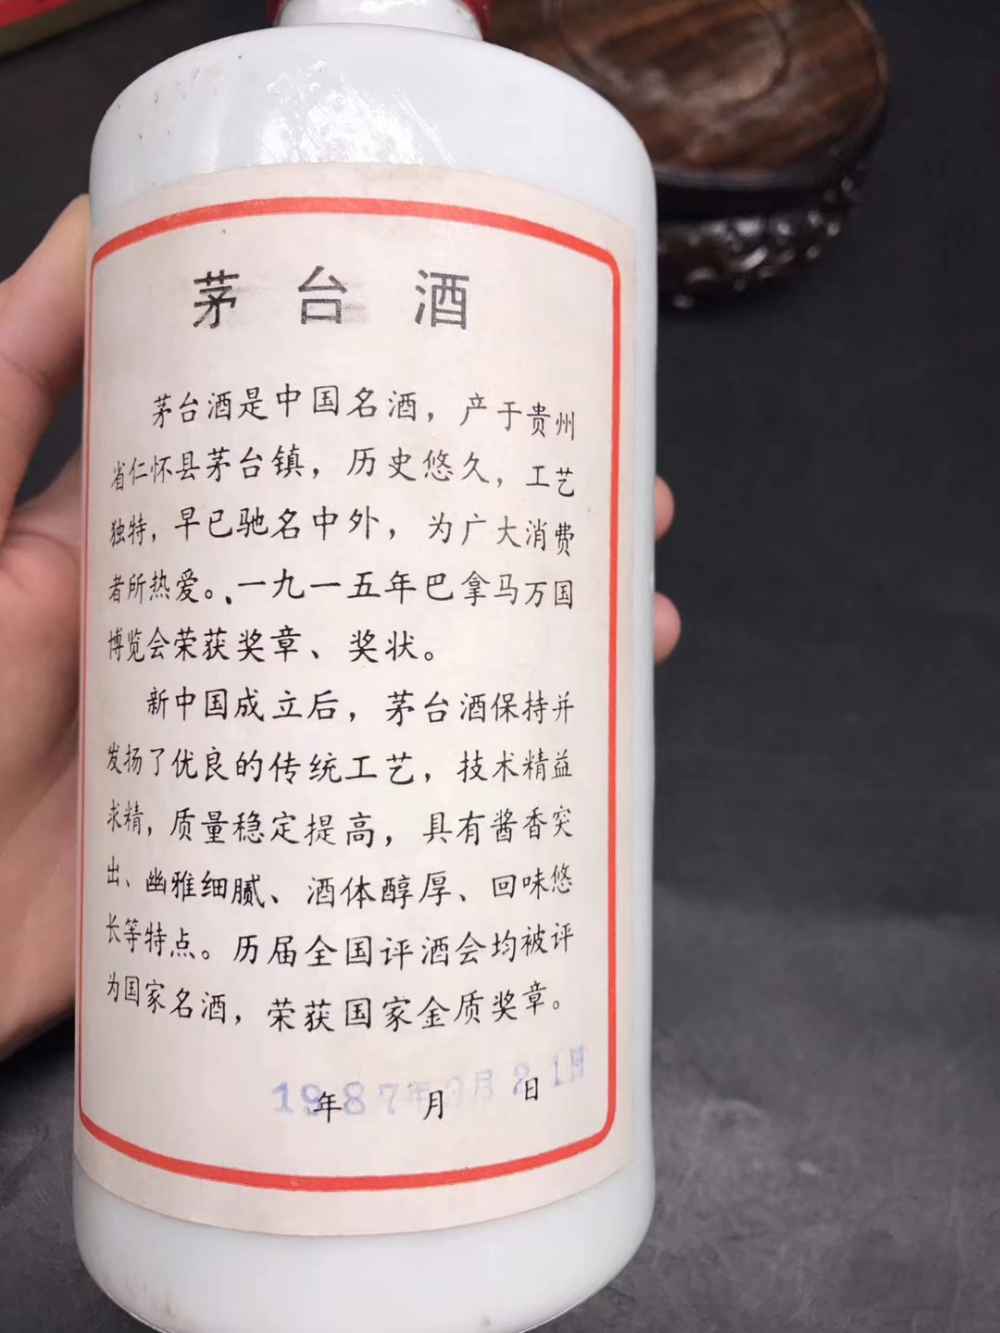 茅台酒
茅台酒是中国名酒，产于贵州
省仁怀县茅台镇，历史悠久，工艺
独特，早已驰名中外，为广大消费
者所热爱。、一九一五年巴拿马万国
博览会荣获奖章、奖状。
新中国成立后，茅台酒保持并
发扬了优良的传统工艺，技术精益
求精，质量稳定提高，具有酱香突
出、幽雅细腻、酒体醇厚、回味悠
长等特点。历届全国评酒会均被评
为国家名酒，荣获国家金质奖章。
年 月 日
1987年 月21日